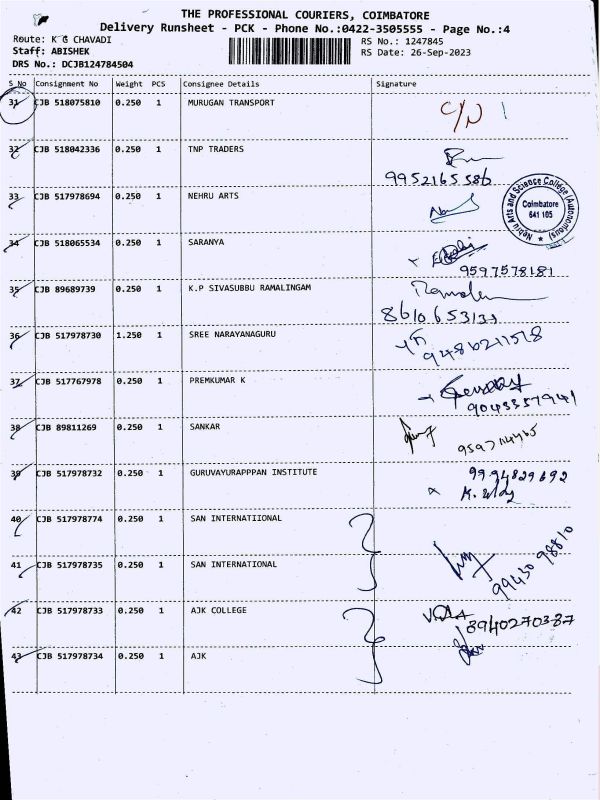 THE PROFESSIONAL COURIERS, COIMBATORE
Delivery Runsheet - PCK - Phone No.:0422-3505555 - Page No.:4
Route: K G CHAVADI RS No.: 1247845
Staff: ABISHEK RS Date: 26-Sep-2023
DRS No.: DCJB124784504
S No Consignment No Weight PCS Consignee Details Signature
31 CJB 518075810 0.250 1 MURUGAN TRANSPORT C/N
32 CJB 518042336 0.250 1 TNP TRADERS
9952165586
33 CJB 517978694 0.250 1 NEHRU ARTS
Nehru Arts and Science College (Autonomous)
Coimbatore
641 105
34 CJB 518065534 0.250 1 SARANYA
9597578181
35 CJB 89689739 0.250 1 K.P SIVASUBBU RAMALINGAM
8610653131
36 CJB 517978730 1.250 1 SREE NARAYANAGURU
37 CJB 517767978 0.250 1 PREMKUMAR K
9043357941
38 CJB 89811269 0.250 1 SANKAR
39 CJB 517978732 0.250 1 GURUVAYURAPPPAN INSTITUTE 9994829692
40 CJB 517978774 0.250 1 SAN INTERNATIIONAL
41 CJB 517978735 0.250 1 SAN INTERNATIONAL
99430 98810
42 CJB 517978733 0.250 1 AJK COLLEGE
8940270387
43 CJB 517978734 0.250 1 AJK